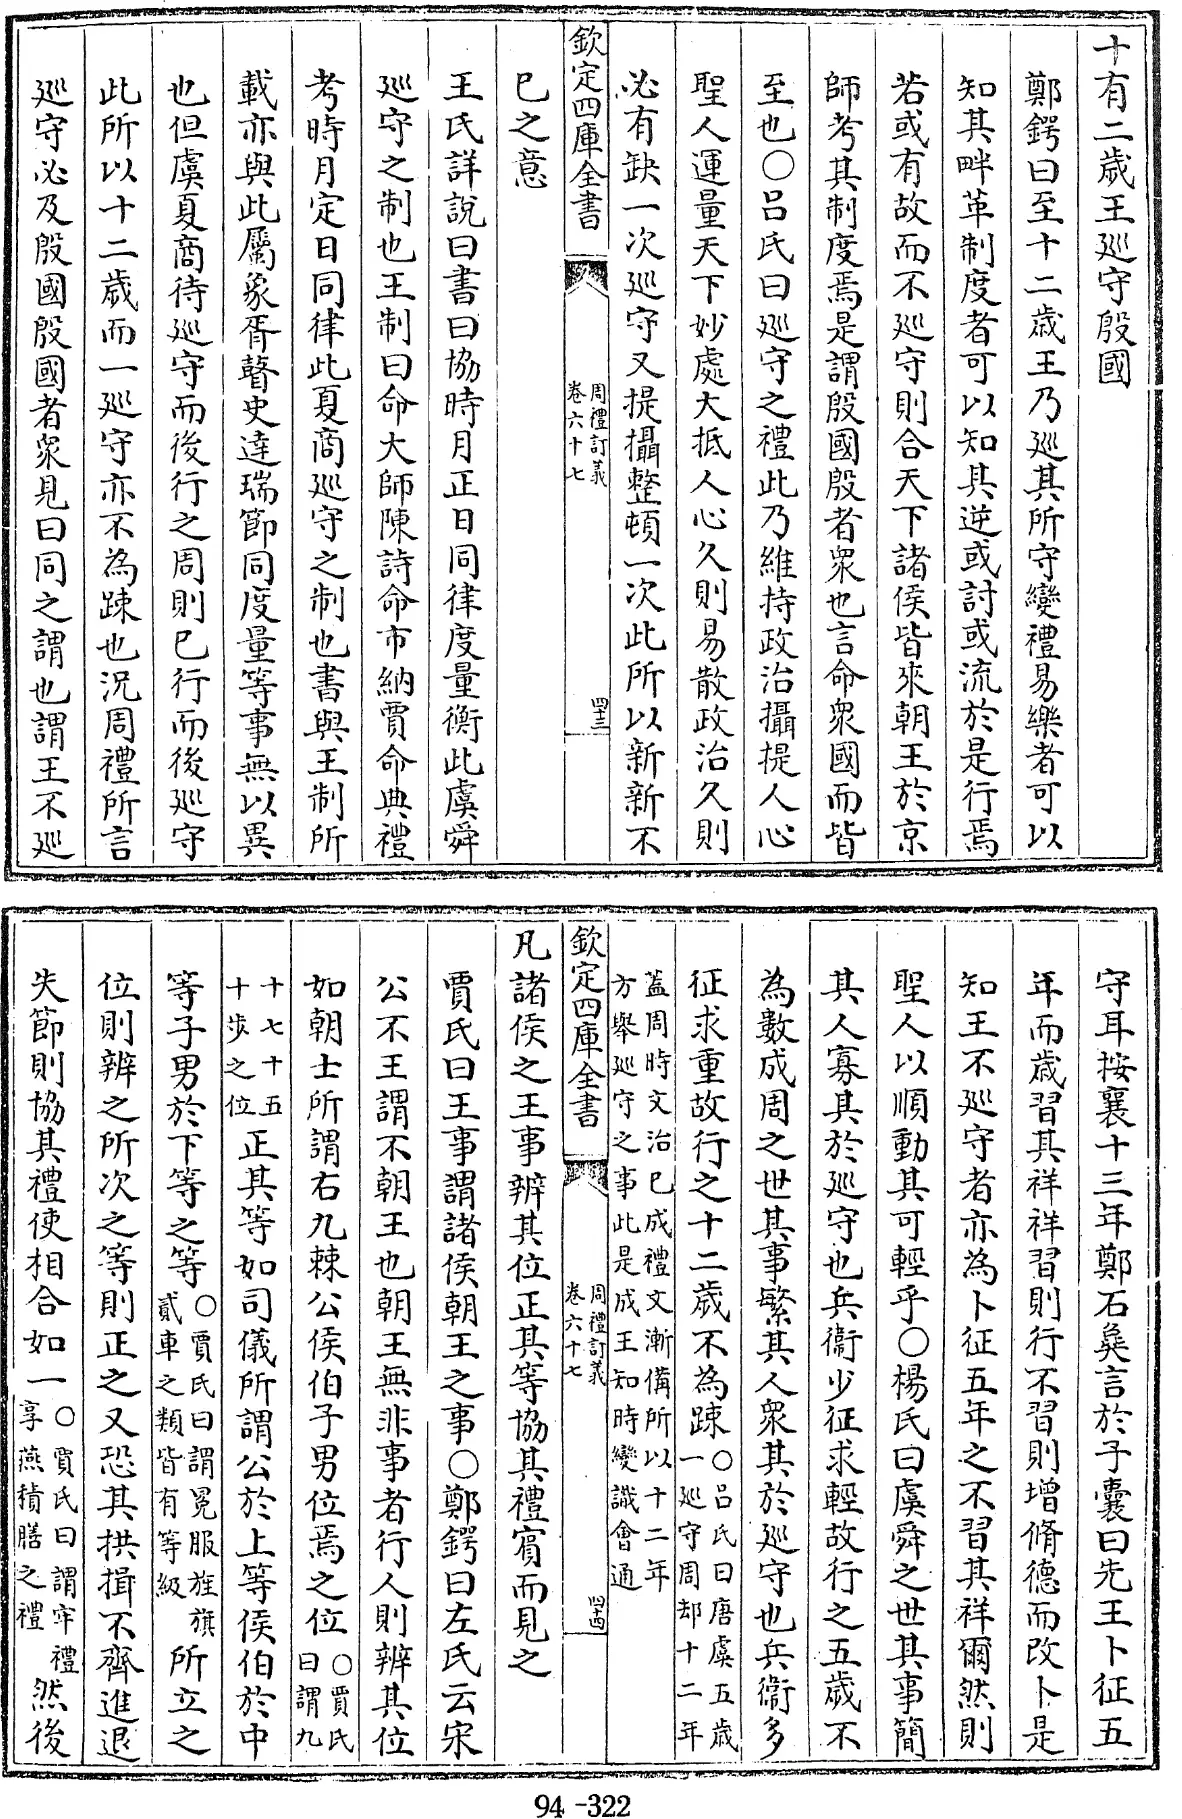 十有二歲王巡守殷國
鄭鍔曰至十二歲王乃巡其所守變禮易樂者可以
知其畔革制度者可以知其逆或討或流於是行焉
若或有故而不巡守則合天下諸侯皆來朝王於京
師考其制度焉是謂殷國殷者衆也言命衆國而皆
至也○呂氏曰巡守之禮此乃維持政治攝提人心
聖人運量天下妙處大抵人心久則易散政治久則
必有缺一次巡守又提攝整頓一次此所以新新不
欽定四庫全書
周禮訂義
卷六十七
四十三
已之意
王氏詳說曰書曰協時月正日同律度量衡此虞舜
巡守之制也王制曰命大師陳詩命市納賈命典禮
考時月定日同律此夏商巡守之制也書與王制所
載亦與此屬象胥瞽史達瑞節同度量等事無以異
也但虞夏商待巡守而後行之周則已行而後巡守
此所以十二歲而一巡守亦不為踈也況周禮所言
巡守必及殷國殷國者衆見曰同之謂也謂王不巡
守耳按襄十三年鄭石㚟言於子囊曰先王卜征五
年而歲習其祥祥習則行不習則增脩德而改卜是
知王不巡守者亦為卜征五年之不習其祥爾然則
聖人以順動其可輕乎○楊氏曰虞舜之世其事簡
其人寡其於巡守也兵衞少征求輕故行之五歲不
為數成周之世其事繁其人衆其於巡守也兵衞多
征求重故行之十二歲不為踈○呂氏曰唐虞五歲
一巡守周却十二年
蓋周時文治已成禮文漸備所以十二年
方舉巡守之事此是成王知時變識會通
欽定四庫全書
周禮訂義
卷六十七
四十四
凡諸侯之王事辨其位正其等協其禮賓而見之
賈氏曰王事謂諸侯朝王之事○鄭鍔曰左氏云宋
公不王謂不朝王也朝王無非事者行人則辨其位
如朝士所謂右九棘公侯伯子男位焉之位○賈氏
曰謂九
十七十五
十步之位
正其等如司儀所謂公於上等侯伯於中
等子男於下等之等○賈氏曰謂冕服旌旗
貳車之類皆有等級
所立之
位則辨之所次之等則正之又恐其拱揖不齊進退
失節則協其禮使相合如一○賈氏曰謂牢禮
享燕積膳之禮
然後
94-322